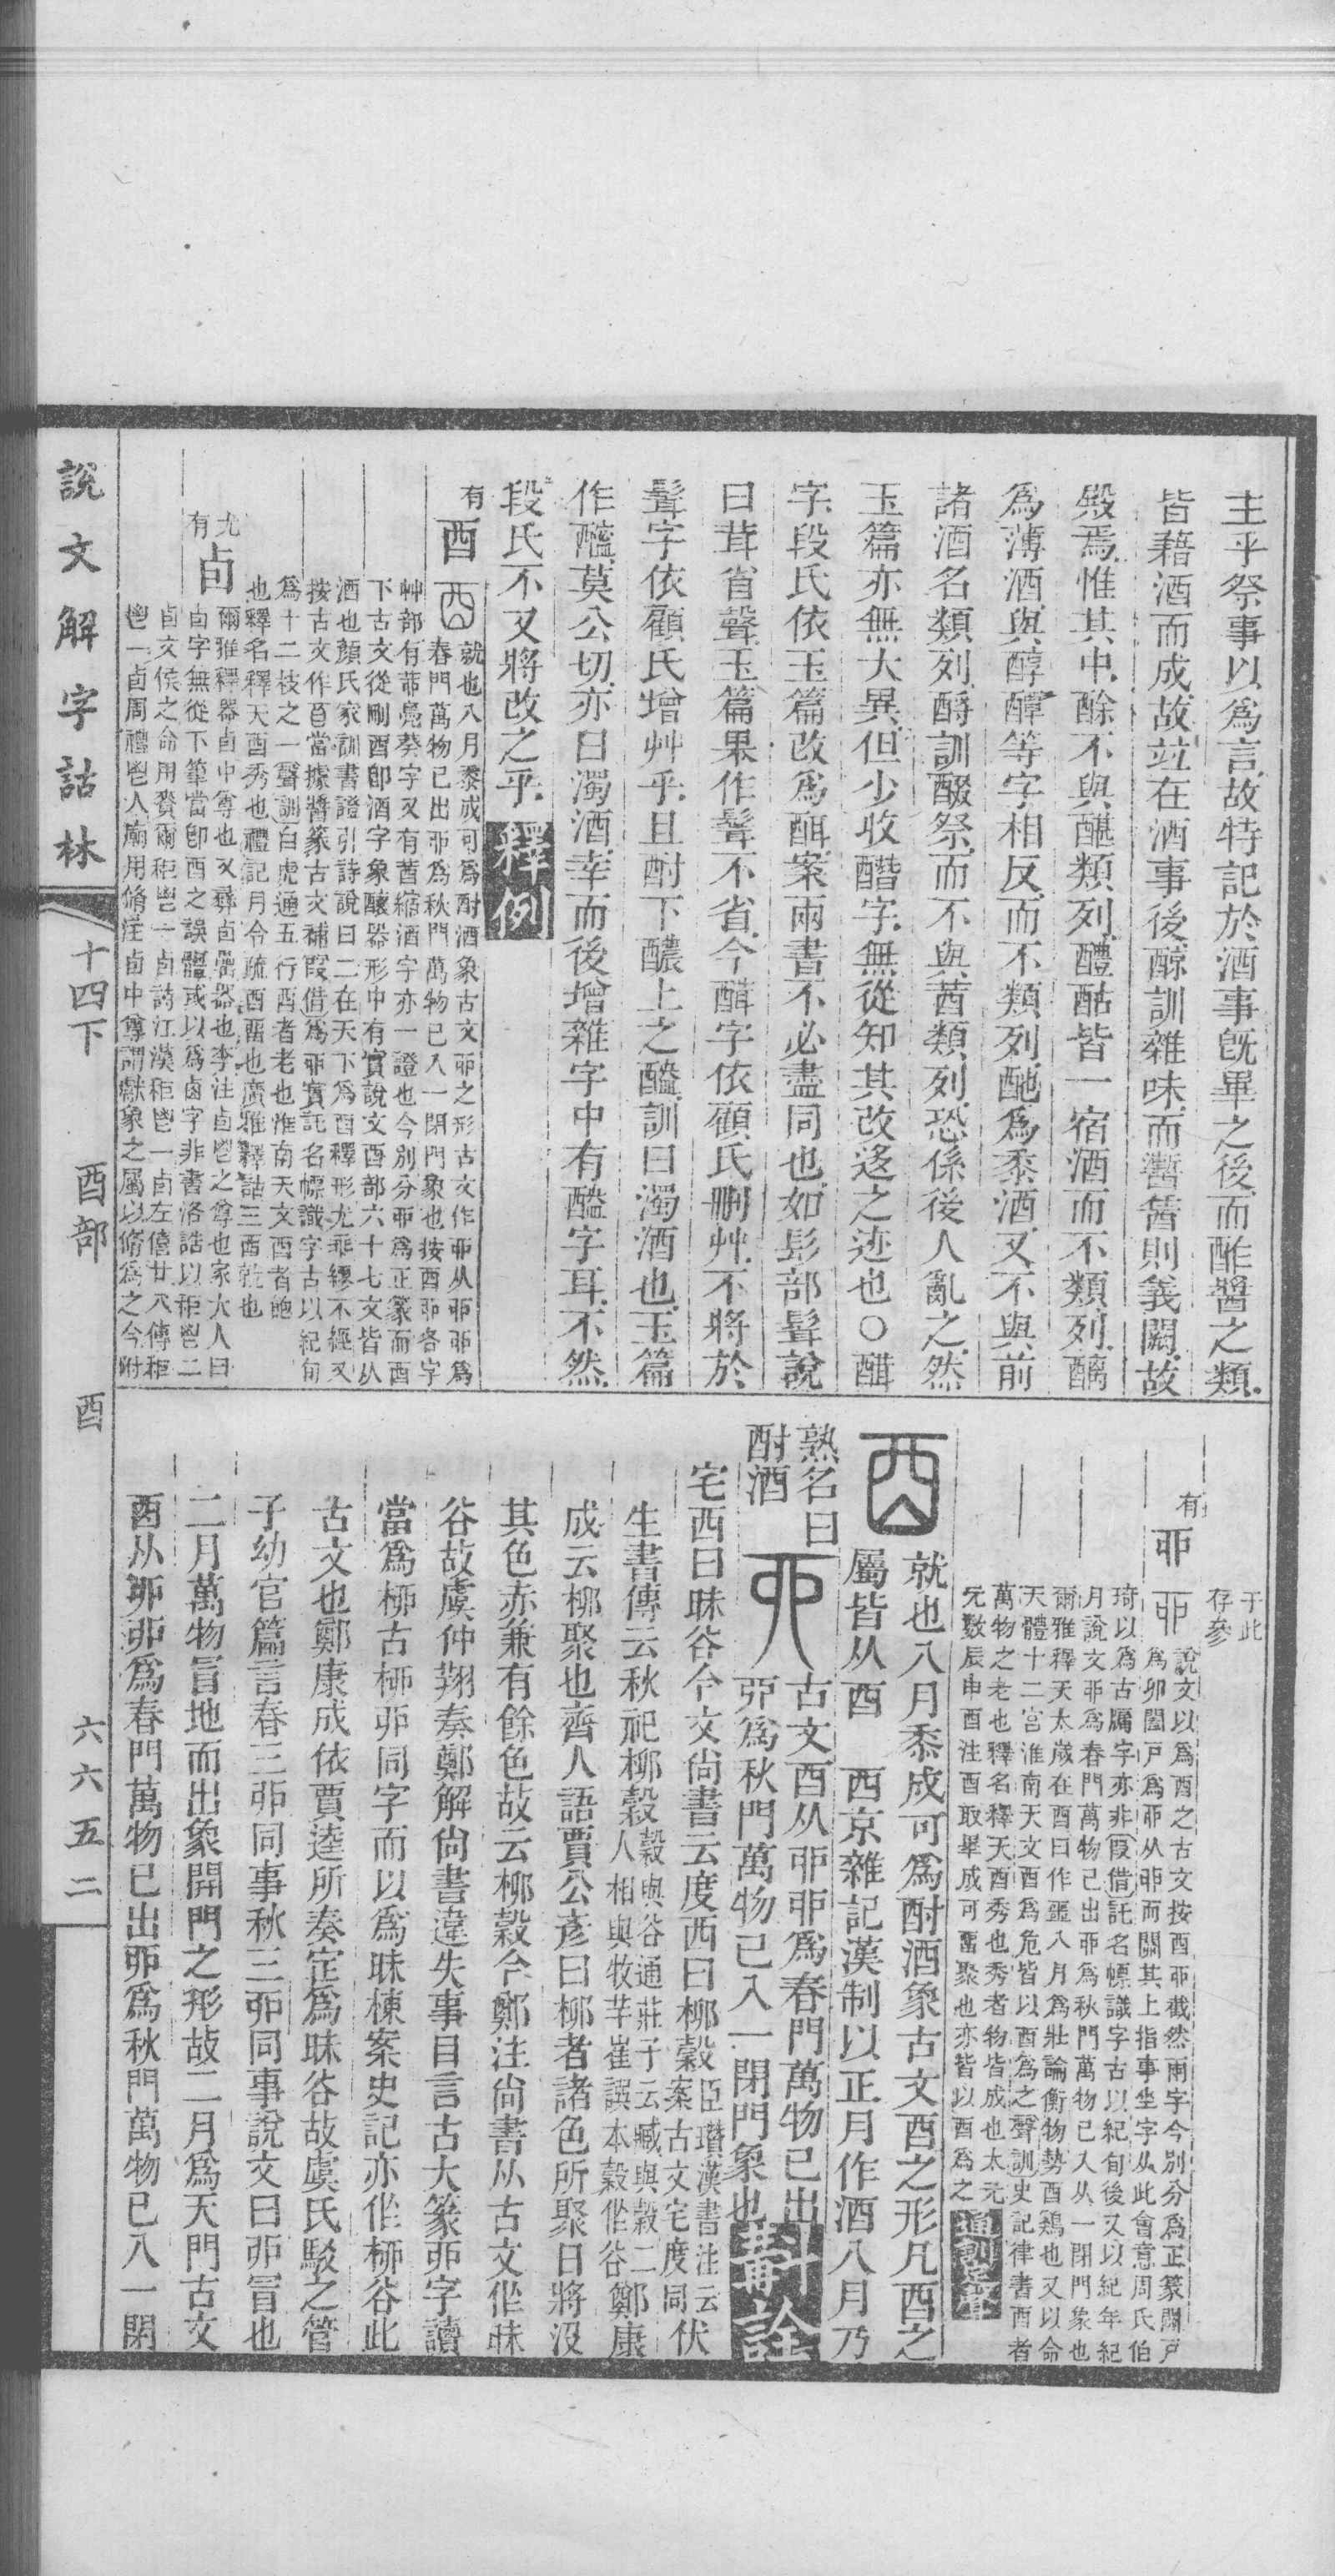 主乎祭事以爲言故特記於酒事旣畢之後而酢醬之類
皆藉酒而成故竝在酒事後醇訓雜味而虀舊則義闕故
殿焉惟其中酴不與醨類列醴酤皆一宿酒而不類列醨
爲薄酒與醇醰等字相反而不類列酏爲黍酒又不與前
諸酒名類列酹訓餟祭而不與莤類列恐係後人亂之然
玉篇亦無大異但少收醋字無從知其改迻之迹也○醋
字段氏依玉篇改爲酭案兩書不必盡同也如髟部髶說
曰茸省聲玉篇果作髶不省今醋字依顧氏刪艸不將於
髶字依顧氏增艸乎且酎下醲上之醠訓曰濁酒也玉篇
作醯莫公切亦曰濁酒幸而後增雜字中有醠字耳不然
段氏不又將改之乎 釋例
有 酉 酉 就也八月黍成可爲酎酒象古文丣之形古文作丣从丣丣爲
春門萬物已出丣爲秋門萬物已入一閉門象也按酉丣各字
下古文從剛酉卽酒字象釀器形中有實說文酉部六十七文皆从
酒也顏氏家訓書證引詩說曰二在天下爲酉釋形尤乖繆不經又
爲十二枝之一聲訓白虎通五行酉者老也淮南天文酉者飽
也釋名釋天酉秀也禮記月令疏酉畱也廣雅釋詁三酉就也
尤有 卣 爾雅釋器卣中尊也又彝卣罍器也李注卣鬯之尊也家大人曰
卣字無從下筆當卽酉之誤體或以爲鹵字非書洛誥以秬鬯二
卣文侯之命用賚爾秬鬯一卣詩江漢秬鬯一卣左僖廿八傳秬
鬯一卣周禮鬯人廟用脩注卣中尊謂獻象之屬以脩爲之今附
于此
存參
有 丣 丣 說文以爲酉之古文按酉丣截然兩字今別分爲正篆闢戸
爲卯闔戸爲丣从丣而關其上指事坐字从此會意周氏伯
琦以爲古牖字亦非叚借託名幖識字古以紀旬後又以紀年紀
月說文丣爲春門萬物已出丣爲秋門萬物已入从一閉門象也
爾雅釋天太歲在酉曰作噩八月爲壯論衡物勢酉鷄也又以命
天體十二宮淮南天文酉爲危皆以酉爲之聲訓史記律書酉者
萬物之老也釋名釋天酉秀也秀者物皆成也太元
元數辰申酉注酉取畢成可畱聚也亦皆以酉爲之 通訓定聲
酉 就也八月黍成可爲酎酒象古文酉之形凡酉之
屬皆从酉 西京雜記漢制以正月作酒八月乃
熟名曰
酎酒 丣 古文酉从丣丣爲春門萬物已出
丣爲秋門萬物已入一閉門象也 斠詮
宅西曰昧谷今文尙書云度西曰柳穀 臣瓚漢書注云 案古文宅度同 伏
生書傳云秋祀柳穀 穀與谷通莊子云臧與穀二 人相與牧羊崔譔本穀作谷 鄭康
成云柳聚也齊人語賈公彥曰柳者諸色所聚日將沒
其色赤兼有餘色故云柳穀今鄭注尙書从古文作昧
谷故虞仲翔奏鄭解尙書違失事目言古大篆丣字讀
當爲柳古柳丣同字而以爲昧棟案史記亦作柳谷此
古文也鄭康成依賈逵所奏定爲昧谷故虞氏駁之管
子幼官篇言春三丣同事秋三丣同事說文曰丣冒也
二月萬物冒地而出象開門之形故二月爲天門古文
酉从丣丣爲春門萬物已出丣爲秋門萬物已入一閉
說文解字詁林 十四下 酉部 酉 六六五二